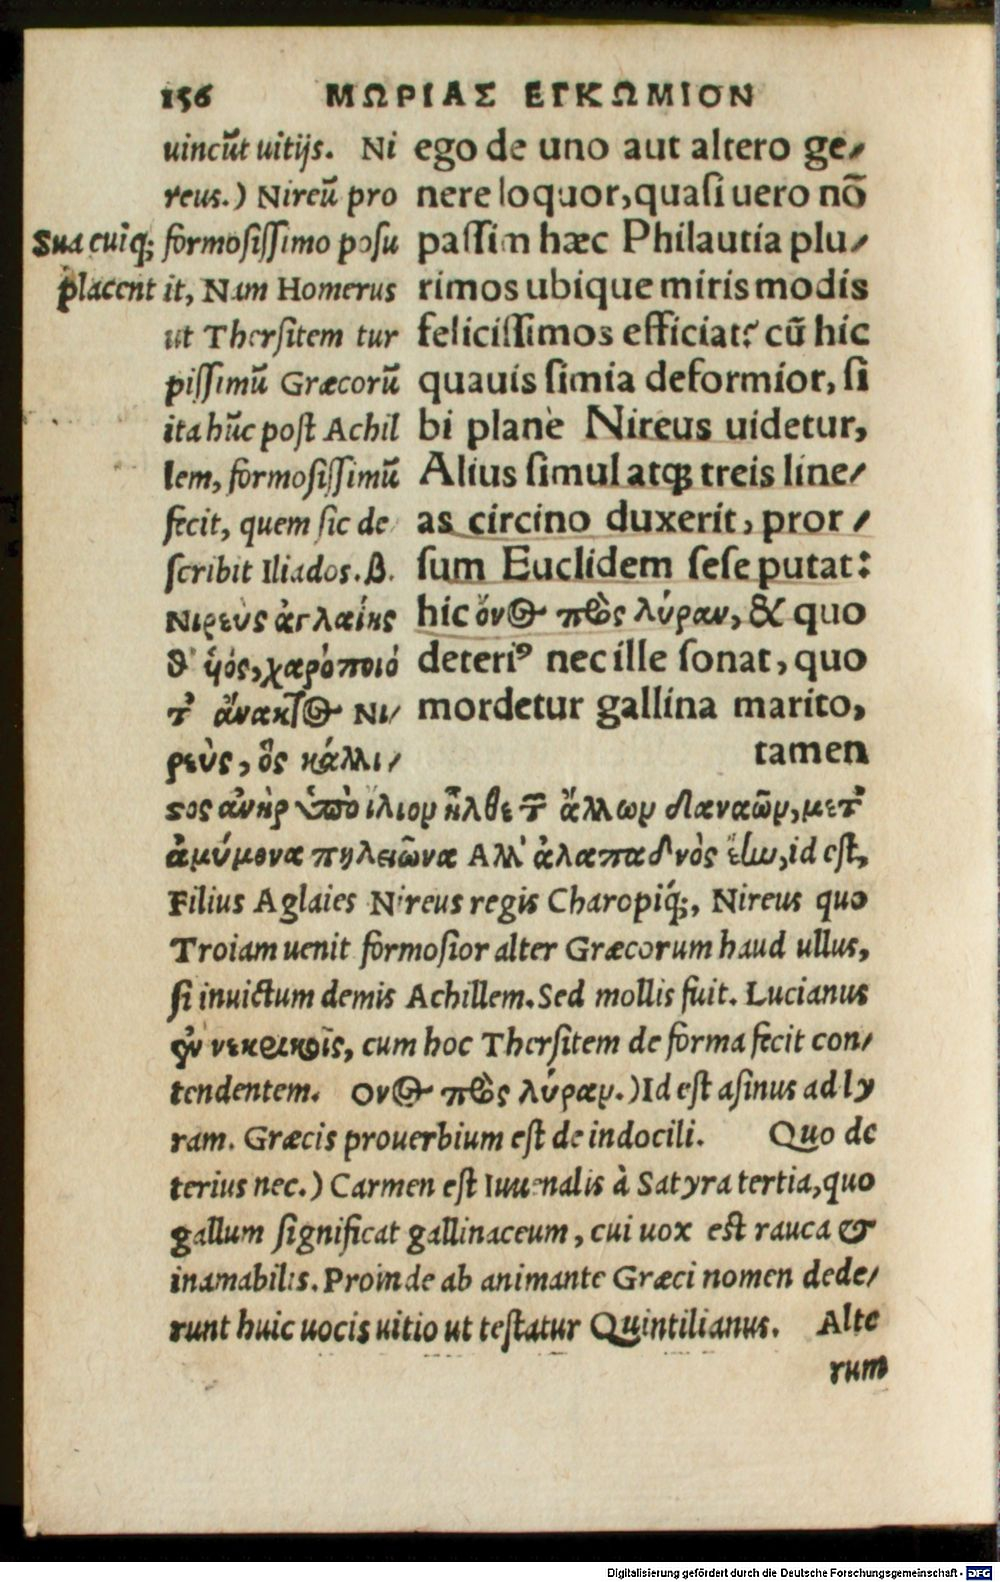 156 ΜΩΡΙΑΣ ΕΓΚΩΜΙΟΝ
ego de uno aut altero ge/
nere loquor, quasi uero nõ
passim hæc Philautia plu/
rimos ubique miris modis
felicissimos efficiat? cũ hic
quauis simia deformior, si
bi planè Nireus uidetur,
Alius simul atq; treis line/
as circino duxerit, pror/
sum Euclidem sese putat:
hic ὄνος πρὸς λύραν, & quo
deteri⁹ nec ille sonat, quo
mordetur gallina marito,
tamen
Sua cuiq;
placent
uincũt uitijs. Ni
reus.) Nireũ pro
formosissimo posu
it, Nam Homerus
ut Thersitem tur
pissimũ Græcorũ
ita hũc post Achil
lem, formosissimũ
fecit, quem sic de
scribit Iliados.β.
Νιρεὺς ἀγλαίης
θ' ὑός, χαρόποιό
τ' ἄνακτος Νι/
ρεὺς, ὃς κάλλι/
ϛος ἀνὴρ ὑπὸ ἵλιον ἦλθε τῶν ἄλλων δαναῶν, μετ'
ἀμύμονα πηλειῶνα Αλλ' ἀλαπαδνὸς ἔην, id est,
Filius Aglaies Nireus regis Charopiq́;, Nireus quo
Troiam uenit formosior alter Græcorum haud ullus,
si inuictum demis Achillem. Sed mollis fuit. Lucianus
ἐν νεκρικοῖς, cum hoc Thersitem de forma fecit con/
tendentem. Ονος πρὸς λύραν.) Id est asinus ad ly
ram. Græcis prouerbium est de indocili. Quo de
terius nec.) Carmen est Iuuenalis à Satyra tertia, quo
gallum significat gallinaceum, cui uox est rauca &
inamabilis. Proinde ab animante Græci nomen dede/
runt huic uocis uitio ut testatur Quintilianus. Alte
rum
Digitalisierung gefördert durch die Deutsche Forschungsgemeinschaft - DFG